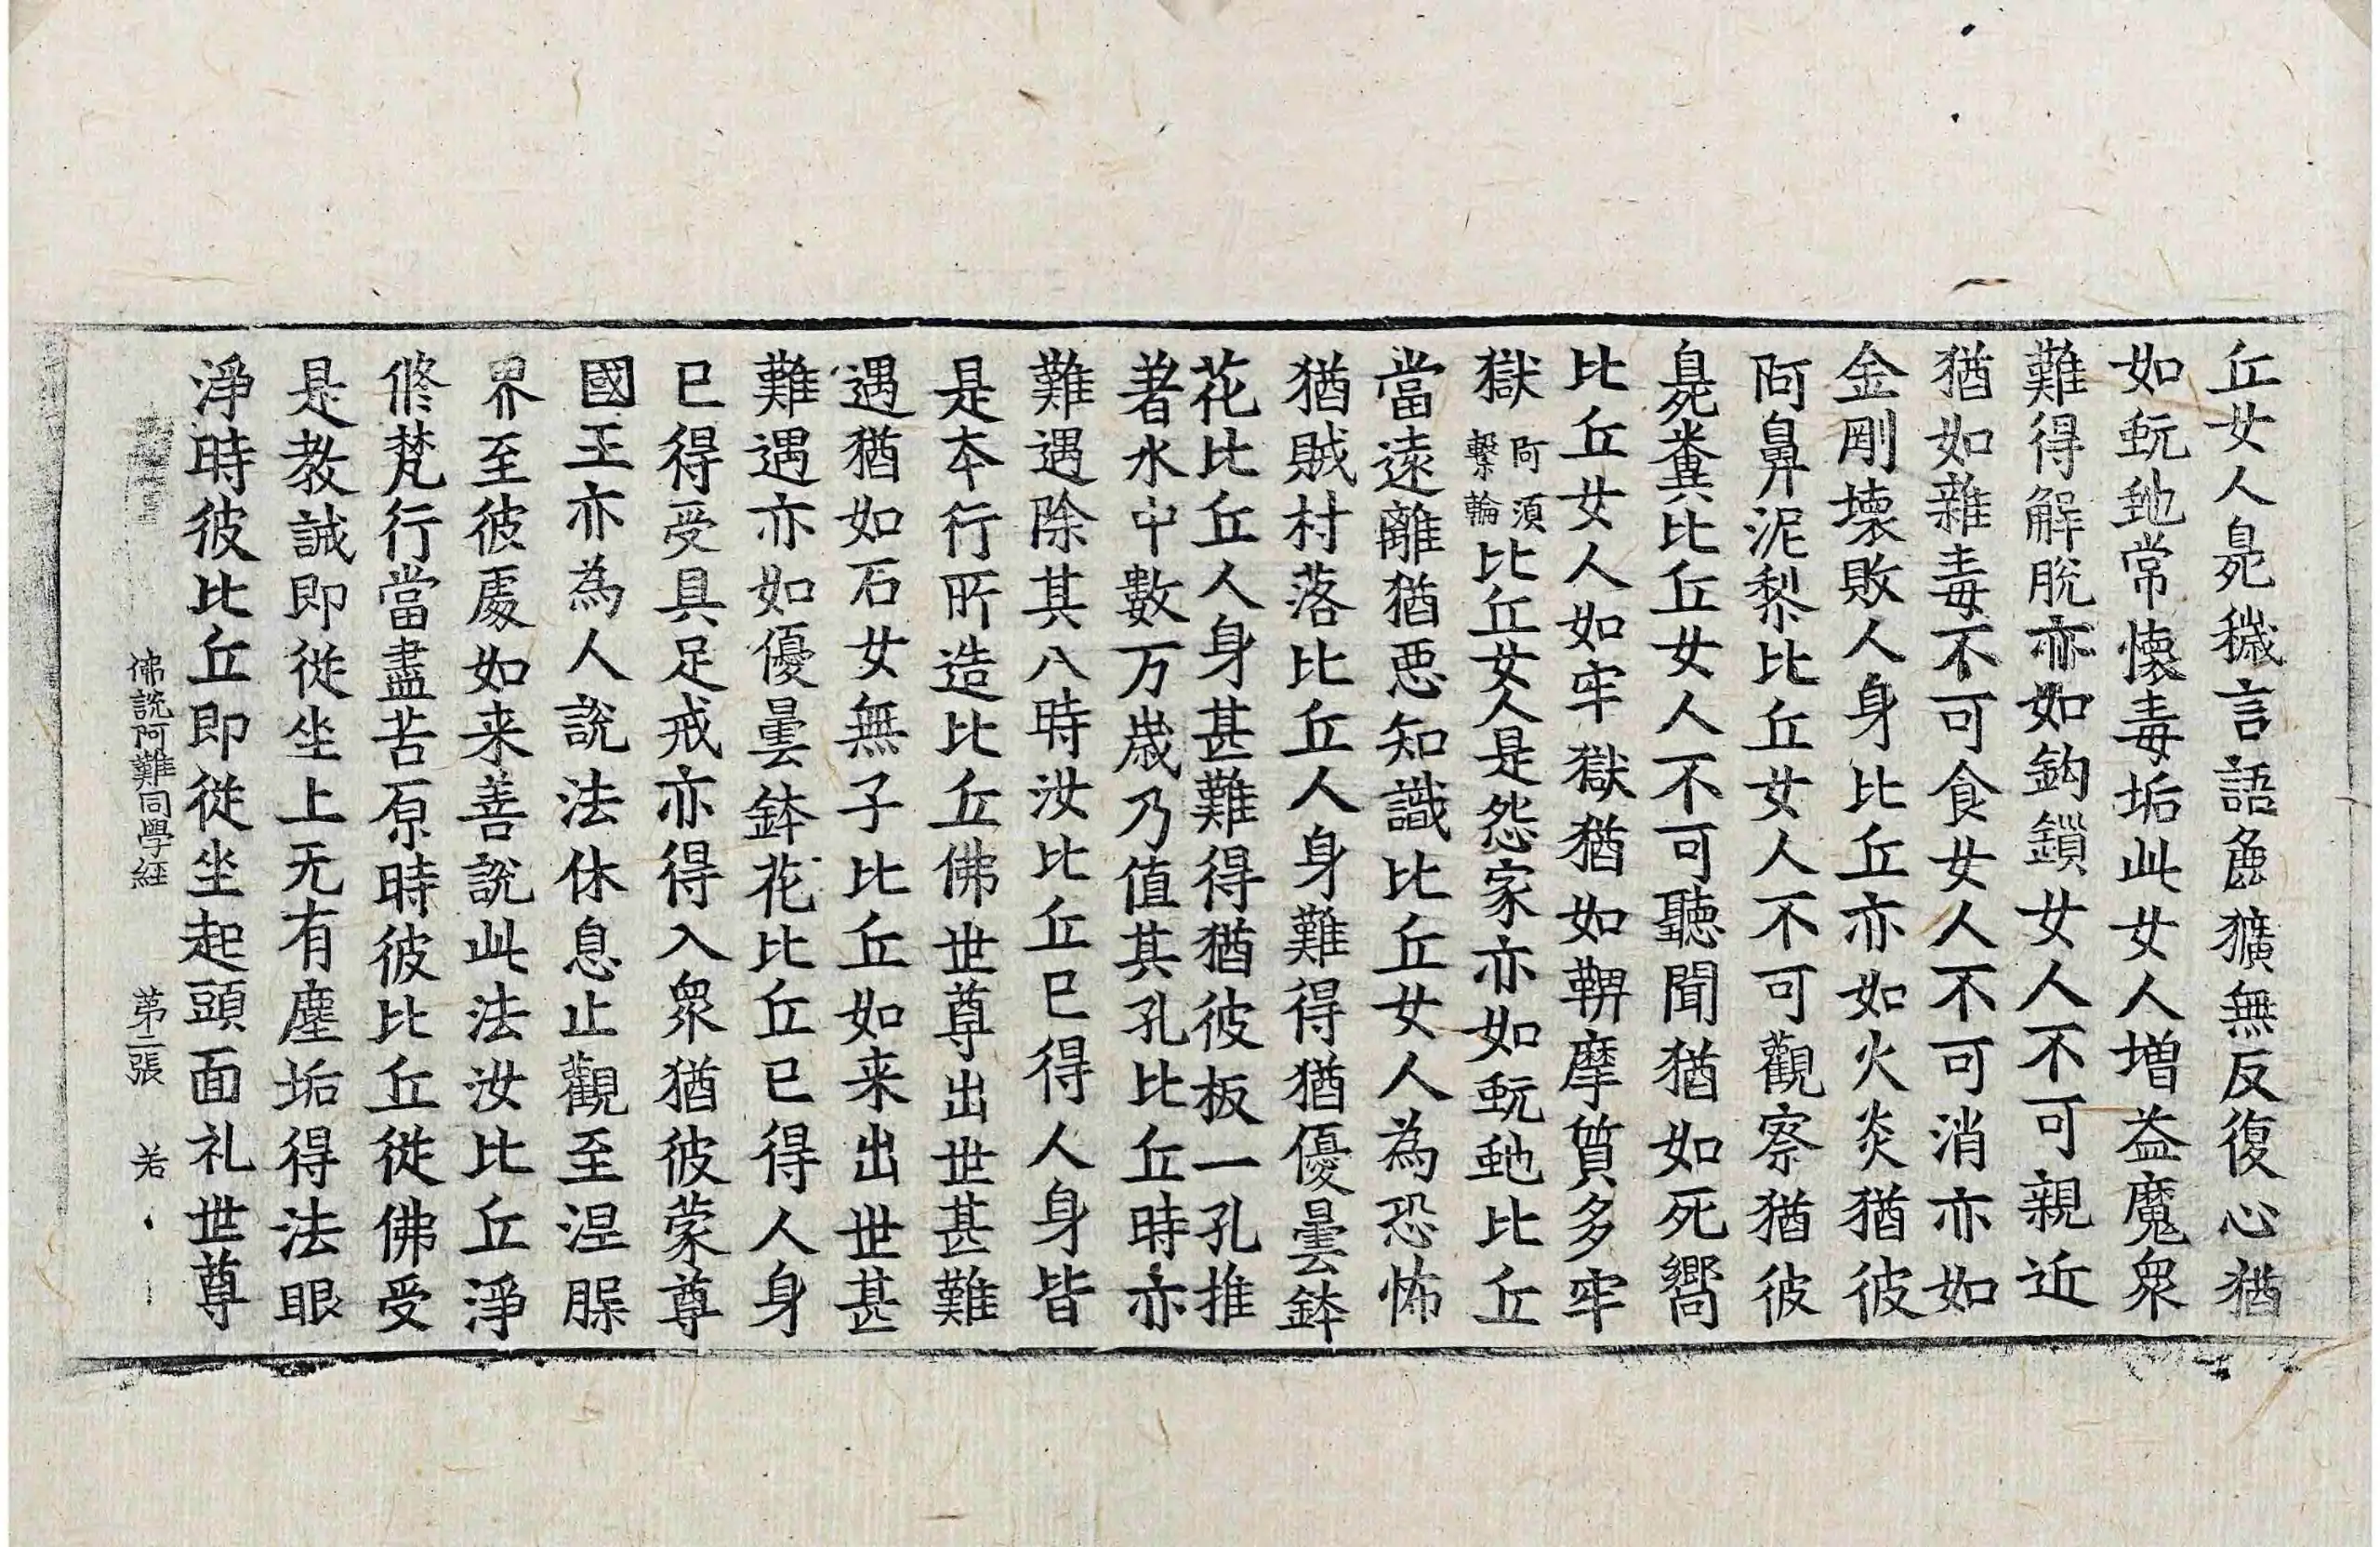 丘女人臰穢言語麁獷無反復心猶
如蚖虵常懷毒垢此女人增益魔衆
難得解脫亦如鈎鎖女人不可親近
猶如雜毒不可食女人不可消亦如
金剛壞敗人身比丘亦如火炎猶彼
阿鼻泥黎比丘女人不可觀察猶彼
臰糞比丘女人不可聽聞猶如死嚮
比丘女人如牢獄猶如鞞摩質多牢
獄阿須繫輪比丘女人是怨家亦如蚖虵比丘
當遠離猶惡知識比丘女人為恐怖
猶賊村落比丘人身難得猶優曇鉢
花比丘人身甚難得猶彼板一孔推
著水中數万歲乃值其孔比丘時亦
難遇除其八時汝比丘已得人身皆
是本行所造比丘佛世尊出世甚難
遇猶如石女無子比丘如来出世甚
難遇亦如優曇鉢花比丘已得人身
已得受具足戒亦得入衆猶彼蒙尊
國王亦為人說法休息止觀至涅槃
界至彼處如来善說此法汝比丘淨
修梵行當盡苦原時彼比丘從佛受
是教誡即從坐上无有塵垢得法眼
淨時彼比丘即從坐起頭面礼世尊
佛說阿難同學経 第二張 若